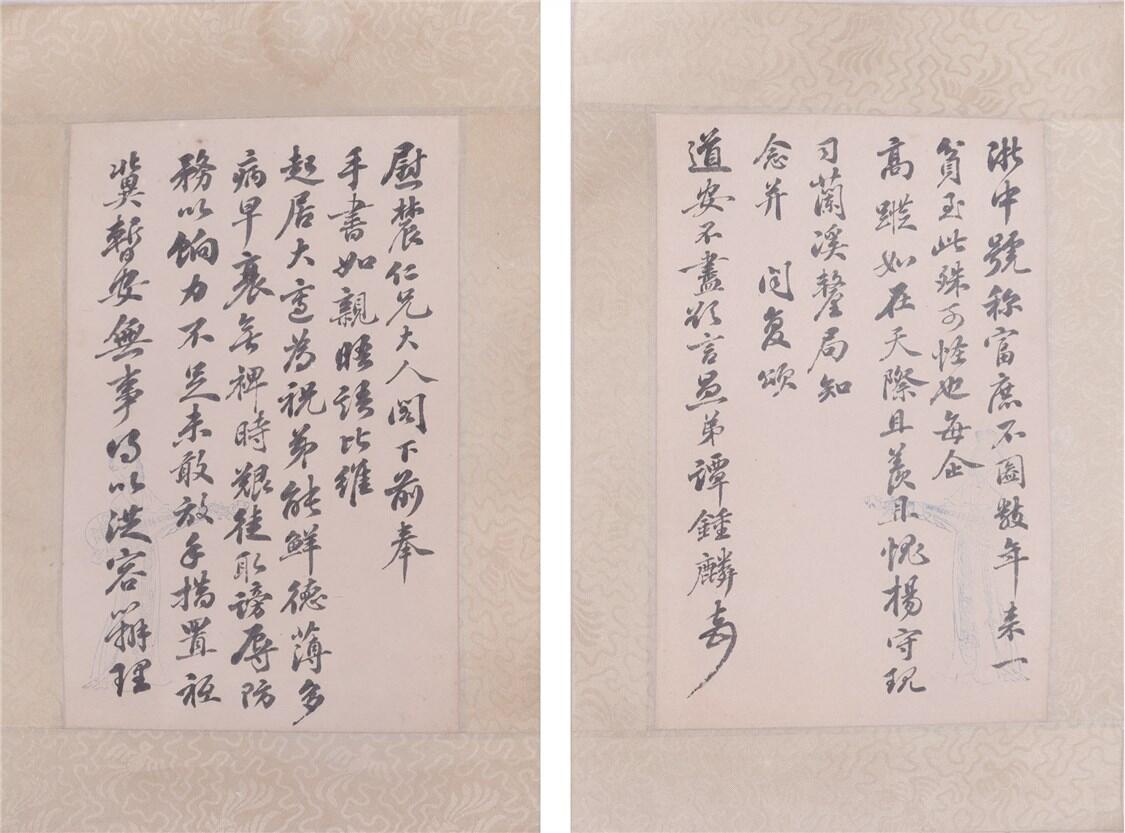 慰農仁兄大人閣下前奉
手書如親晤語比維
起居大適為祝弟能鮮德薄多
病早衰無裨時艱徒取謗辱防
務以餉力不足未敢放手措置祗
冀暫安無事得以從容辦理
浙中號称富庶不圖數年来一
貧至此殊可怪也每企
高蹤如在天際且羨且愧楊守現
司蘭溪釐局知
念并問复頌
道安不盡欲言愚弟譚鍾麟